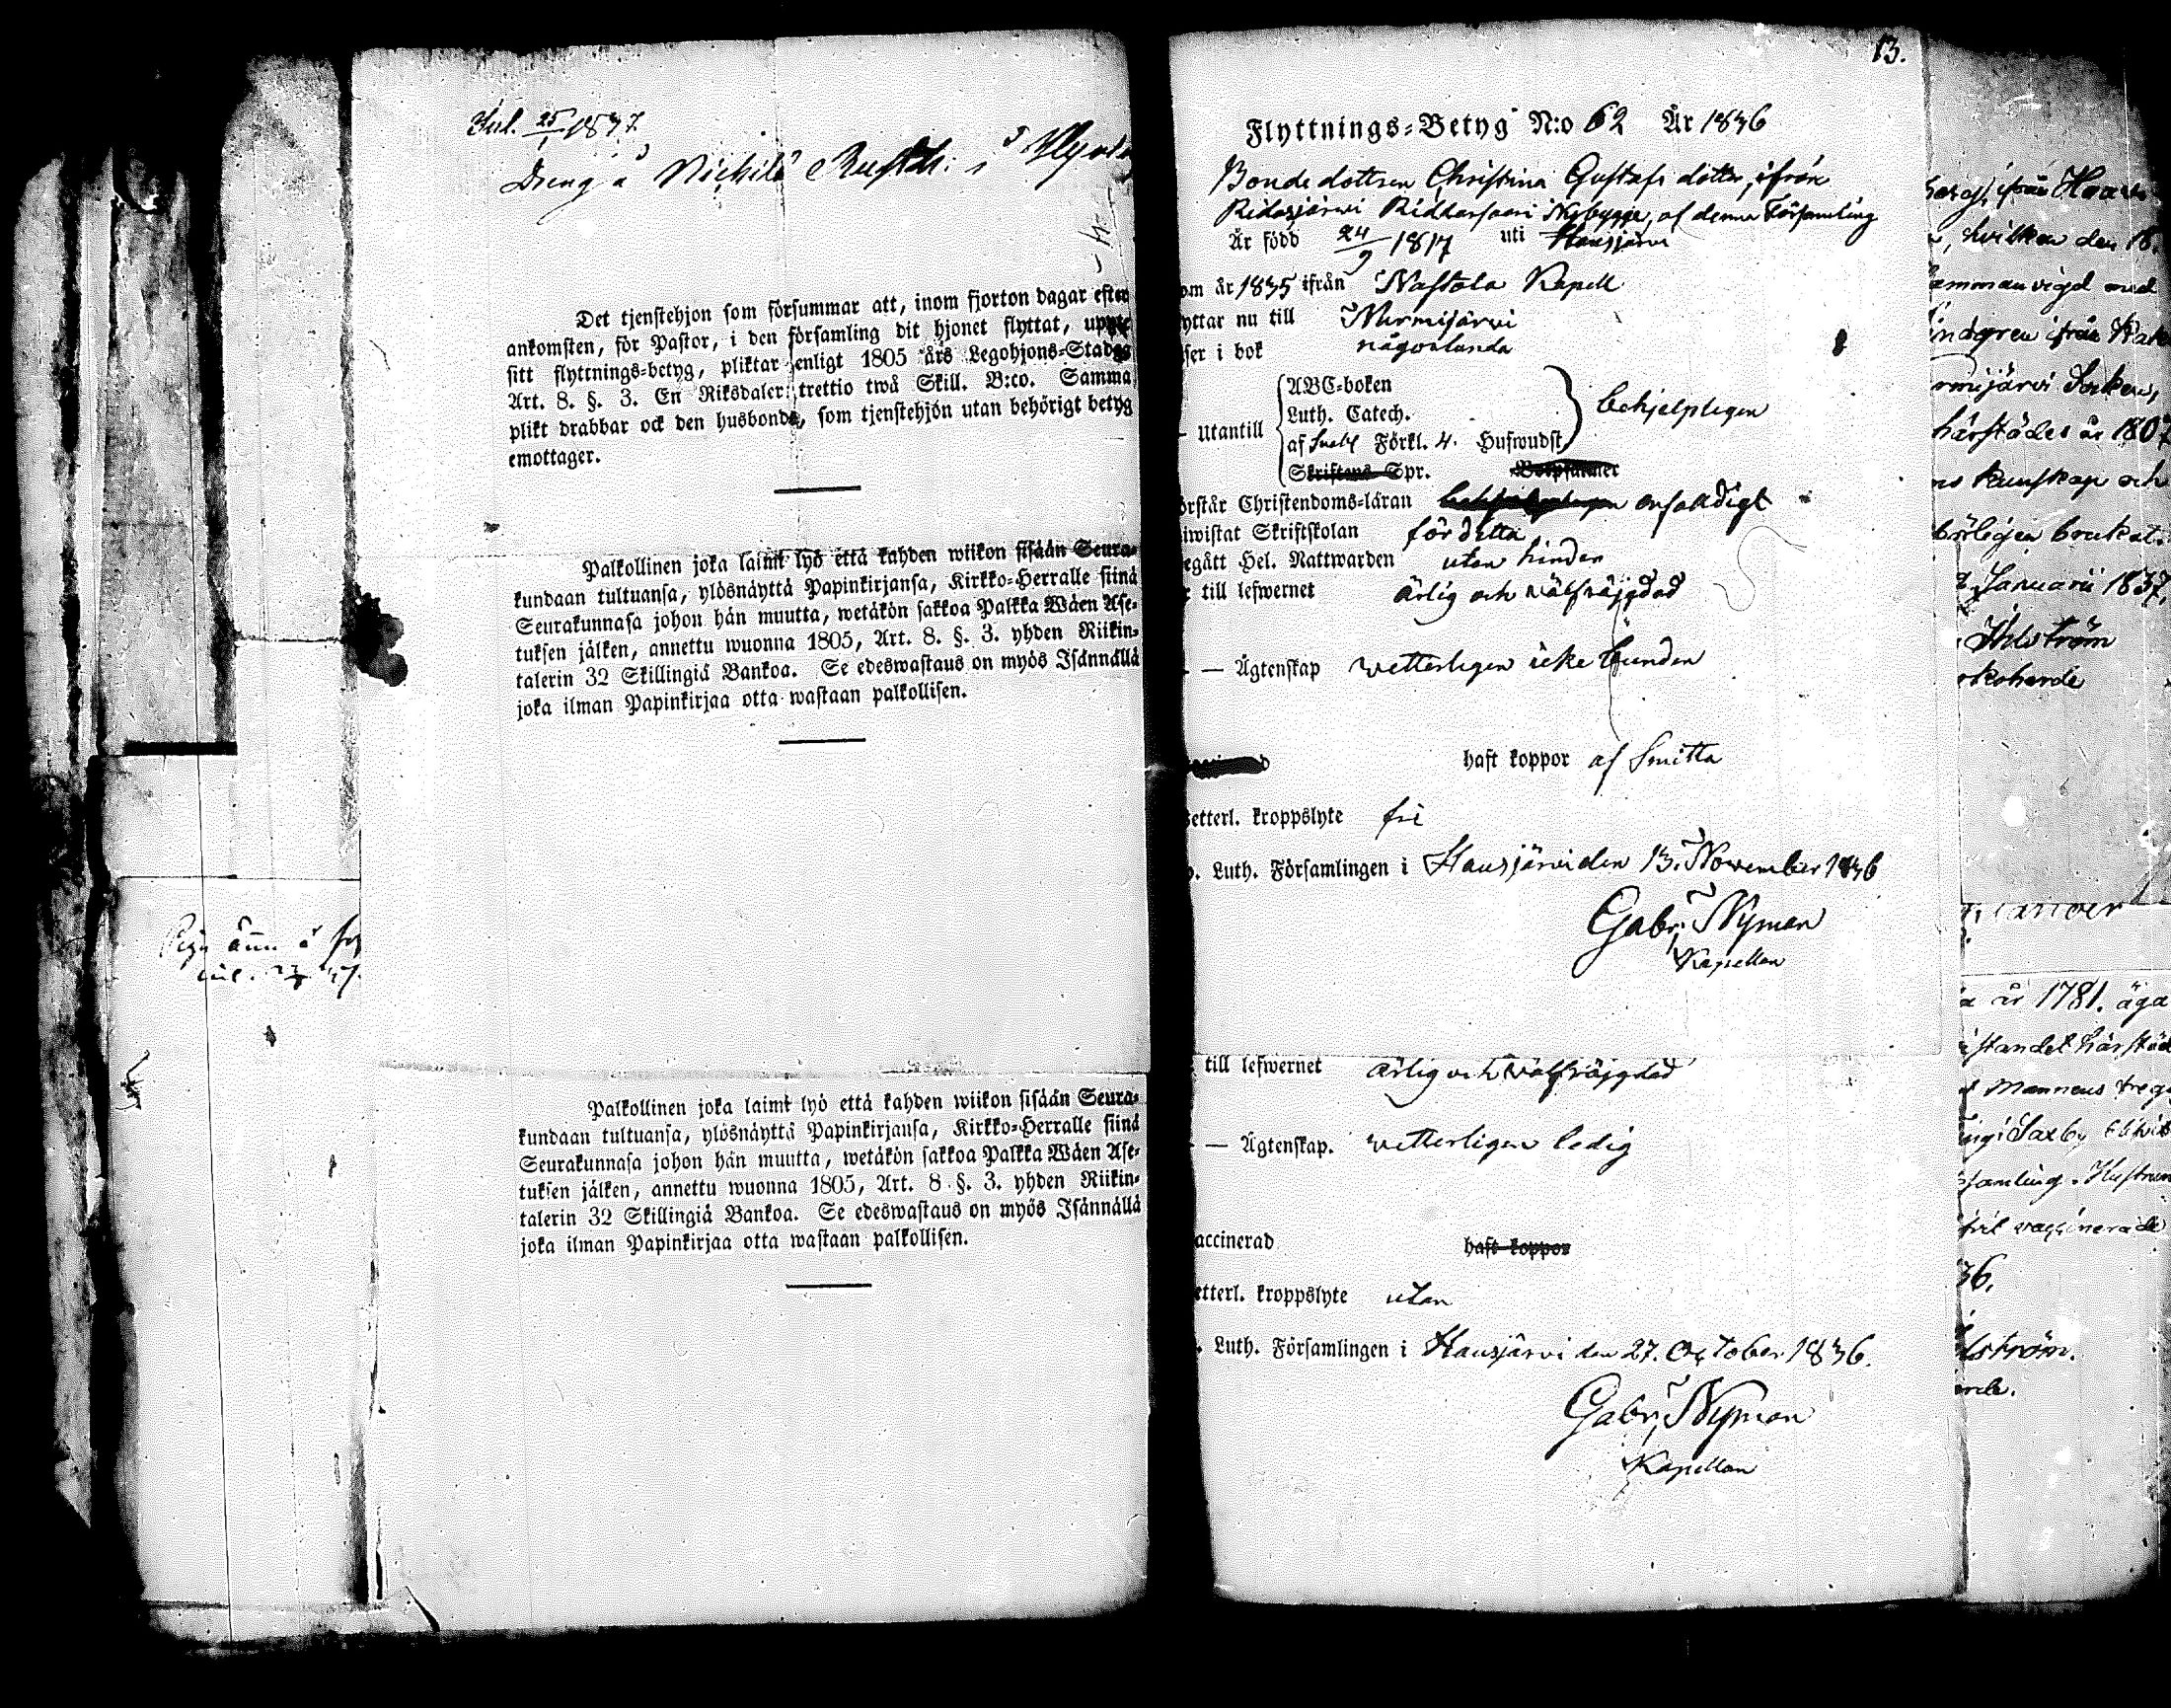 Inl. 25/1 1837.
Dreng å Nickilä Rusth: i
Det tjenstehjon som försummar att, inom fjorton dagar efter
ankomsten, för Pastor, i den församling dit hjonet flyttat, uppte
sitt flyttnings-betyg, pliktar enligt 1805 års Legohjons-Stadga
Art. 8. §. 3. En Riksdaler trettio twå Skill. B:co. Samma
plikt drabbar ock den husbonde, som tjenstehjon utan behörigt betyg
emottager.
Palkollinen joka laimi lyö että kahden wiikon sisään Seura-
kundaan tultuansa, ylösnäyttä Papinkirjansa, Kirkko-Herralle siinä
Seurakunnasa johon hän muutta, wetäkön sakkoa Palkka Wäen Ase-
tuksen jälken, annettu wuonna 1805, Art. 8. §. 3. yhden Riikin-
talerin 32 Skillingiä Bankoa. Se edeswastaus on myös Isännällä
joka ilman Papinkirjaa otta wastaan palkollisen.
Palkollinen joka laimi lyö että kahden wiikon sisään Seura-
kundaan tultuansa, ylösnäyttä Papinkirjansa, Kirkko-Herralle siinä
Seurakunnasa johon hän muutta, wetäkön sakkoa Palkka Wäen Ase-
tuksen jälken, annettu wuonna 1805, Art. 8 §. 3. yhden Riikin-
talerin 32 Skillingiä Bankoa. Se edeswastaus on myös Isännällä
joka ilman Papinkirjaa otta wastaan palkollisen.
13.
Flyttnings-Betyg N:o 62 År 1836
Bonde dottren Christina Gustafs dotter, ifrån
Ridasjärwi Riddarsaari Nybygge, af denna Församling
Är född 24/9 1817 uti Hausjärvi
om år 1835 ifrån Nastola Kapell
yttar nu till Nurmijärwi
ser i bok någorlunda
Utantill
ABC-boken
Luth. Catech.
af Sveb. Förkl. 4. Hufwudst.
behjelpligen
Skriftens Spr.
örstår Christendoms-läran enfaldigt
iwistat Skriftskolan för detta
egått Hel. Nattwarden utan hinder
till lefwernet ärlig och wälfräjgdad
— Ägtenskap wetterligen icke bunden
haft koppor af Smitta
etterl. kroppslyte fri
Luth. Församlingen i Hausjärvi den 13. November 1836
Gabr. Nyman
Kapellan
till lefwernet ärlig och wälfräjgdad
— Ägtenskap. wetterligen ledig
accinerad haft koppor
etterl. kroppslyte utan
Luth. Församlingen i Hausjärvi den 27. October 1836.
Gabr. Nyman
Kapellan
hvilken den 18.
ammanvigd med
indgren ifrån
rmijärvi Socken,
härstädes år 1807
kunskap och
börligen brukat.
Januarii 1837.
Ahlström
rkoherde
år 1781. äga
ståndet härstäd
mannens
Saxby
samling. Hustrun
vaccinerade
36.
lström.
erde.